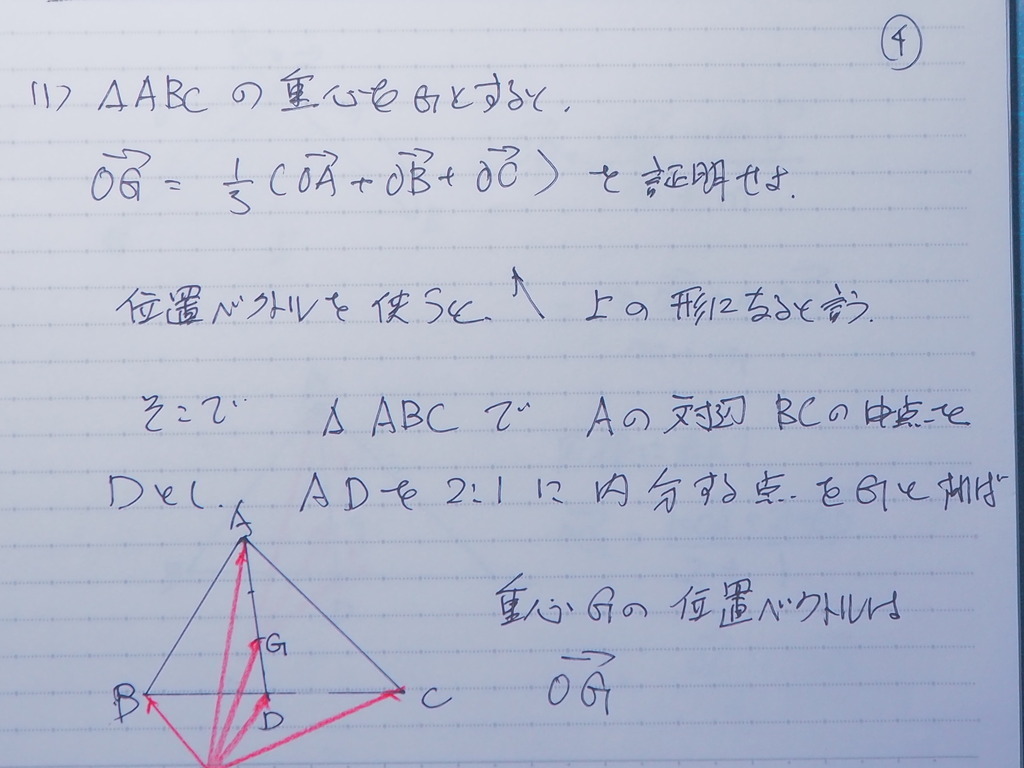 ④
(1) △ABCの重心をGとすると、
$\overrightarrow{OG} = \frac{1}{3}(\overrightarrow{OA} + \overrightarrow{OB} + \overrightarrow{OC})$ を証明せよ.
位置ベクトルを使うと、↖ 上の形になると言う.
そこで △ABCで Aの対辺 BCの中点を
Dとし、ADを2:1に内分する点をGとすれば
A
重心Gの位置ベクトルは
G
$\overrightarrow{OG}$
B D C